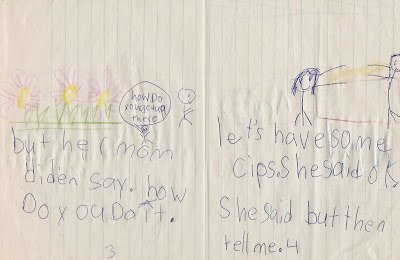 how Do
you get up
there
but her mom
diden say. how
Do you Do it.
3
let's have some
cips. She said ok
She said but then
tell me. 4